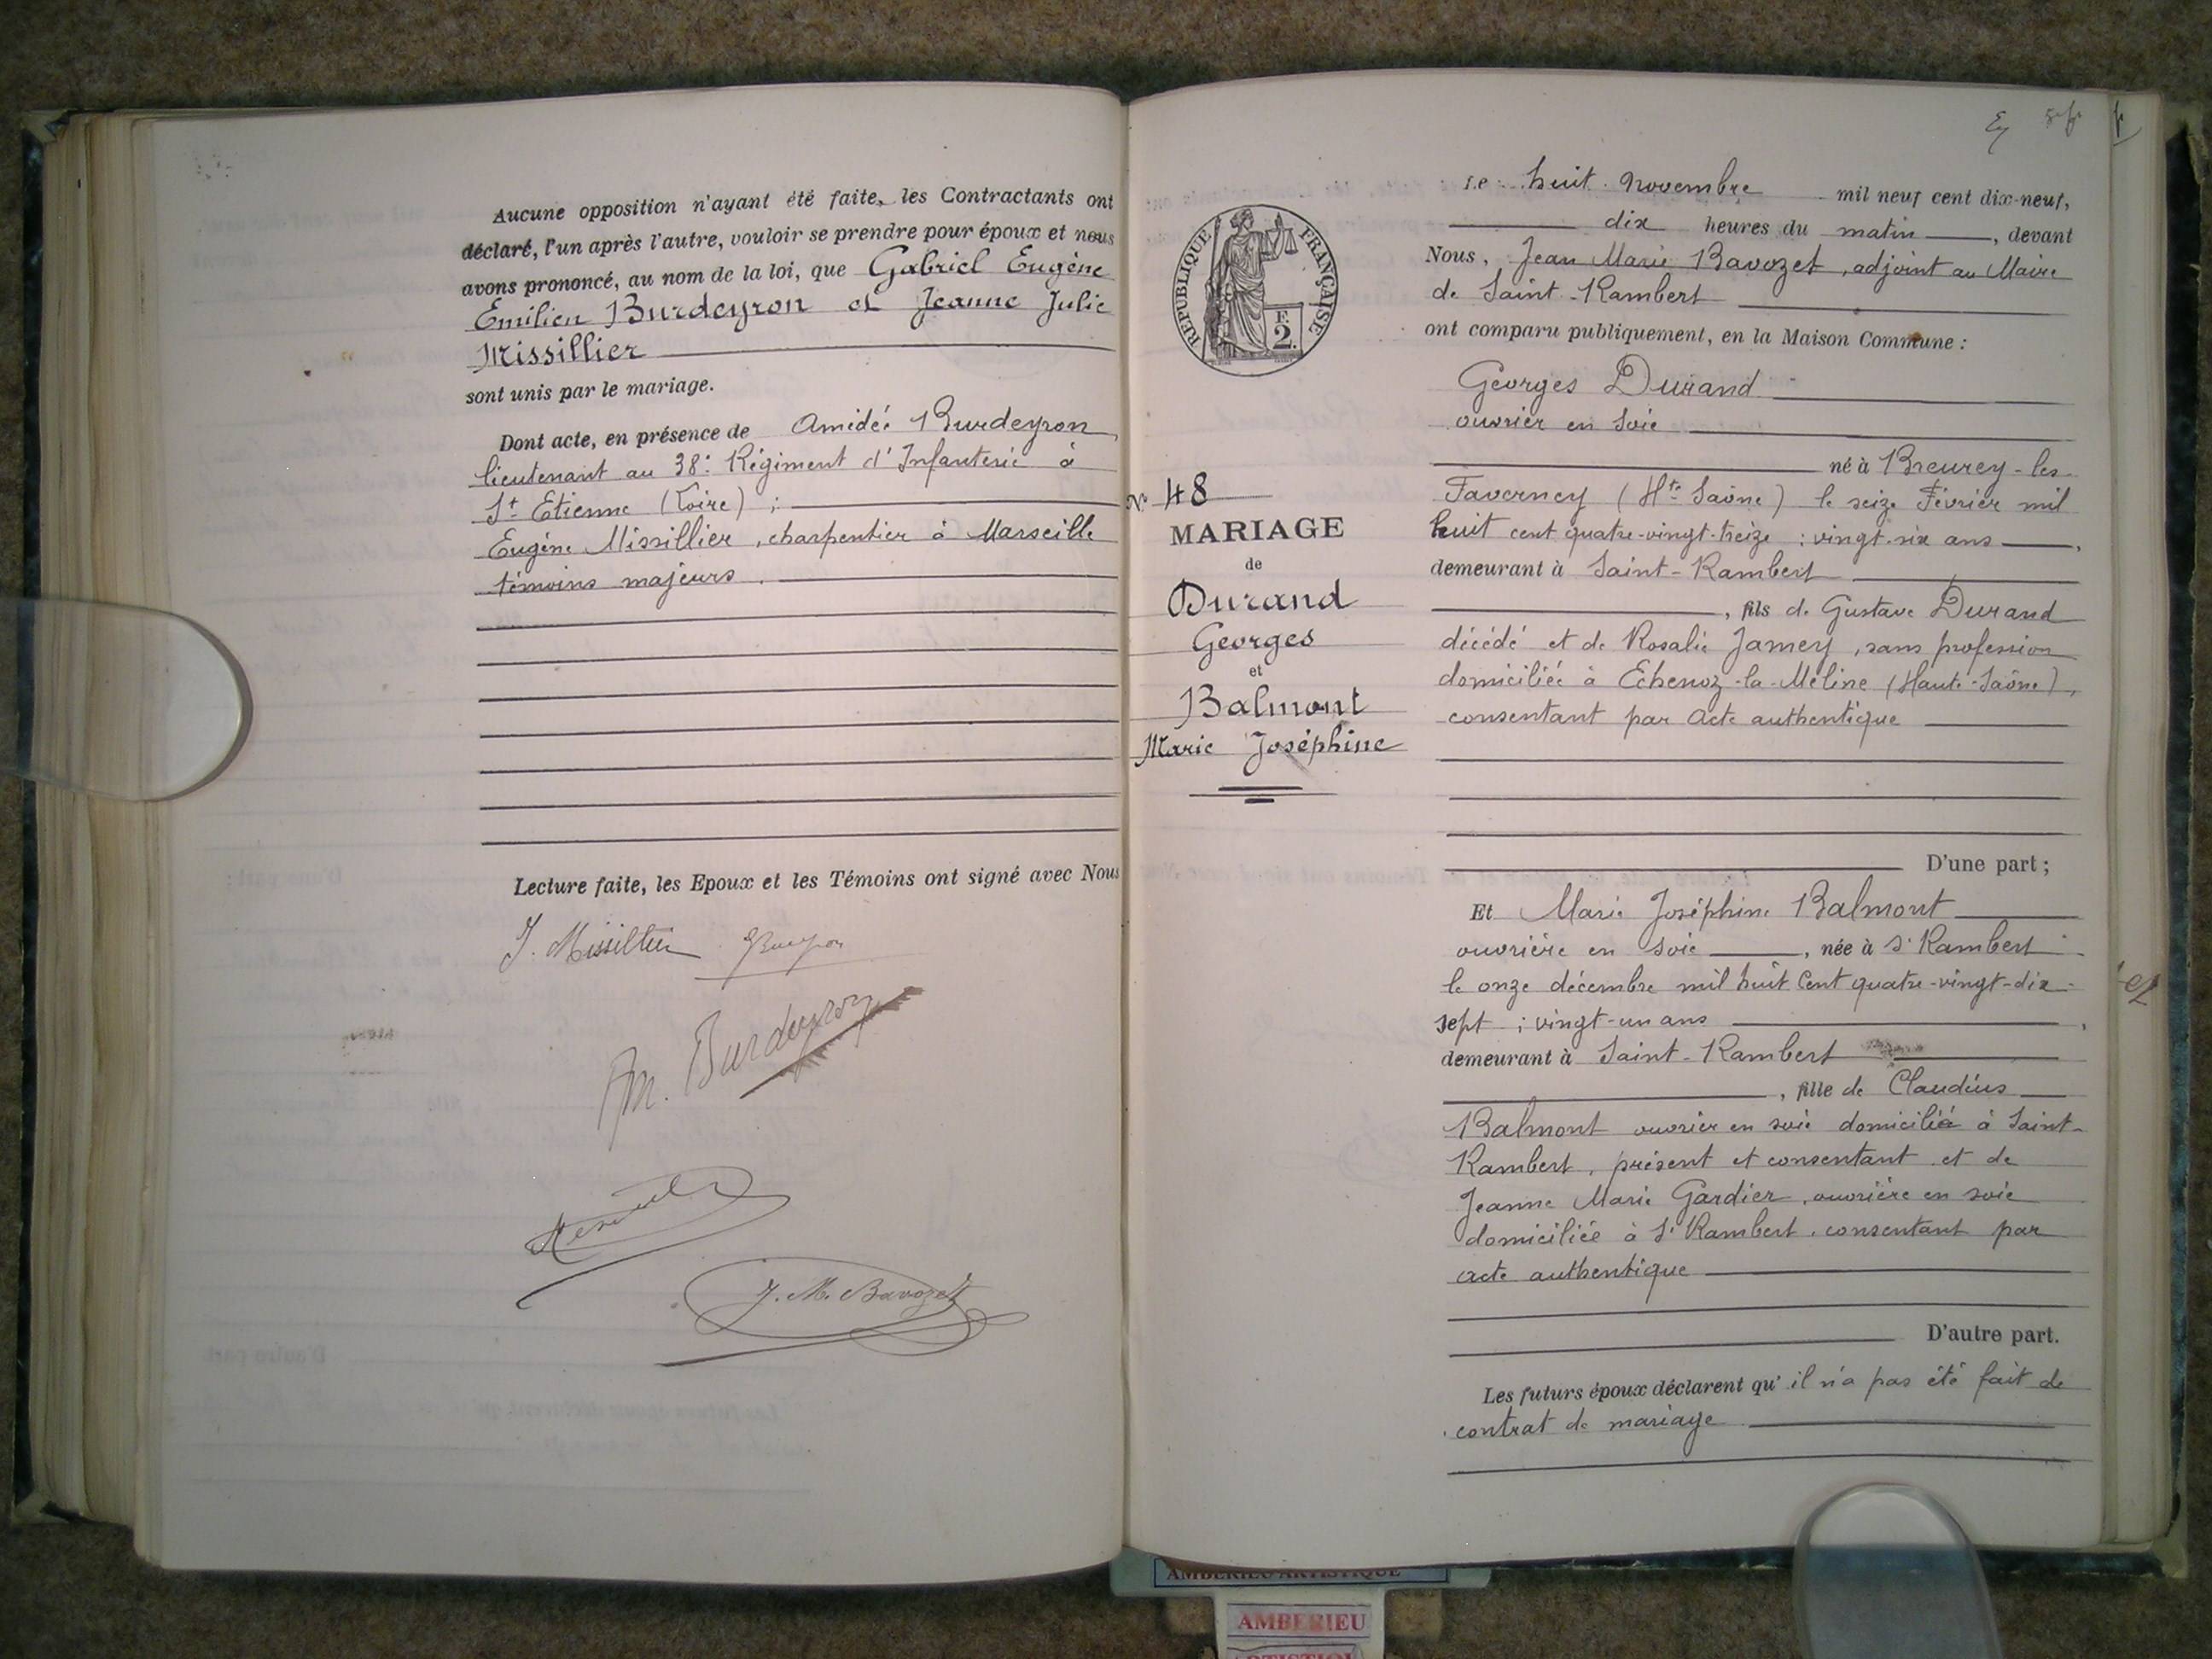 Aucune opposition n'ayant été faite, les Contractants ont
déclaré, l'un après l'autre, vouloir se prendre pour époux et nous
avons prononcé, au nom de la loi, que Gabriel Eugène
Emilien Burdeyron et Jeanne Julie
Missillier
sont unis par le mariage.
Dont acte, en présence de Amédée Burdeyron,
lieutenant au 38e Régiment d'Infanterie à
St Etienne (Loire) ;
Eugène Missillier, charpentier à Marseille
témoins majeurs.
Lecture faite, les Epoux et les Témoins ont signé avec Nous
J. Missillier
Am. Burdeyron
J. M. Bavozet
RÉPUBLIQUE FRANÇAISE
F.
2.
No 48
MARIAGE
de
Durand
Georges
et
Balmont
Marie Joséphine
Le huit Novembre mil neuf cent dix-neuf,
dix heures du matin, devant
Nous, Jean Marie Bavozet, adjoint au Maire
de Saint-Rambert
ont comparu publiquement, en la Maison Commune :
Georges Durand
ouvrier en soie
né à Breurey-les-
Faverney (Hte Saône) le seize Février mil
huit cent quatre-vingt-treize : vingt-six ans,
demeurant à Saint-Rambert
, fils de Gustave Durand
décédé et de Rosalie Jamey, sans profession
domiciliée à Echenoz-la-Méline (Haute-Saône),
consentant par acte authentique
D'une part ;
Et Marie Joséphine Balmont
ouvrière en soie, née à St Rambert
le onze décembre mil huit cent quatre-vingt-dix-
sept ; vingt-un ans,
demeurant à Saint-Rambert
, fille de Claudius
Balmont ouvrier en soie domicilié à Saint-
Rambert, présent et consentant et de
Jeanne Marie Gardier, ouvrière en soie
domiciliée à St Rambert, consentant par
acte authentique
D'autre part.
Les futurs époux déclarent qu'il n'a pas été fait de
contrat de mariage
AMBERIEU ARTISTIQUE
AMBERIEU